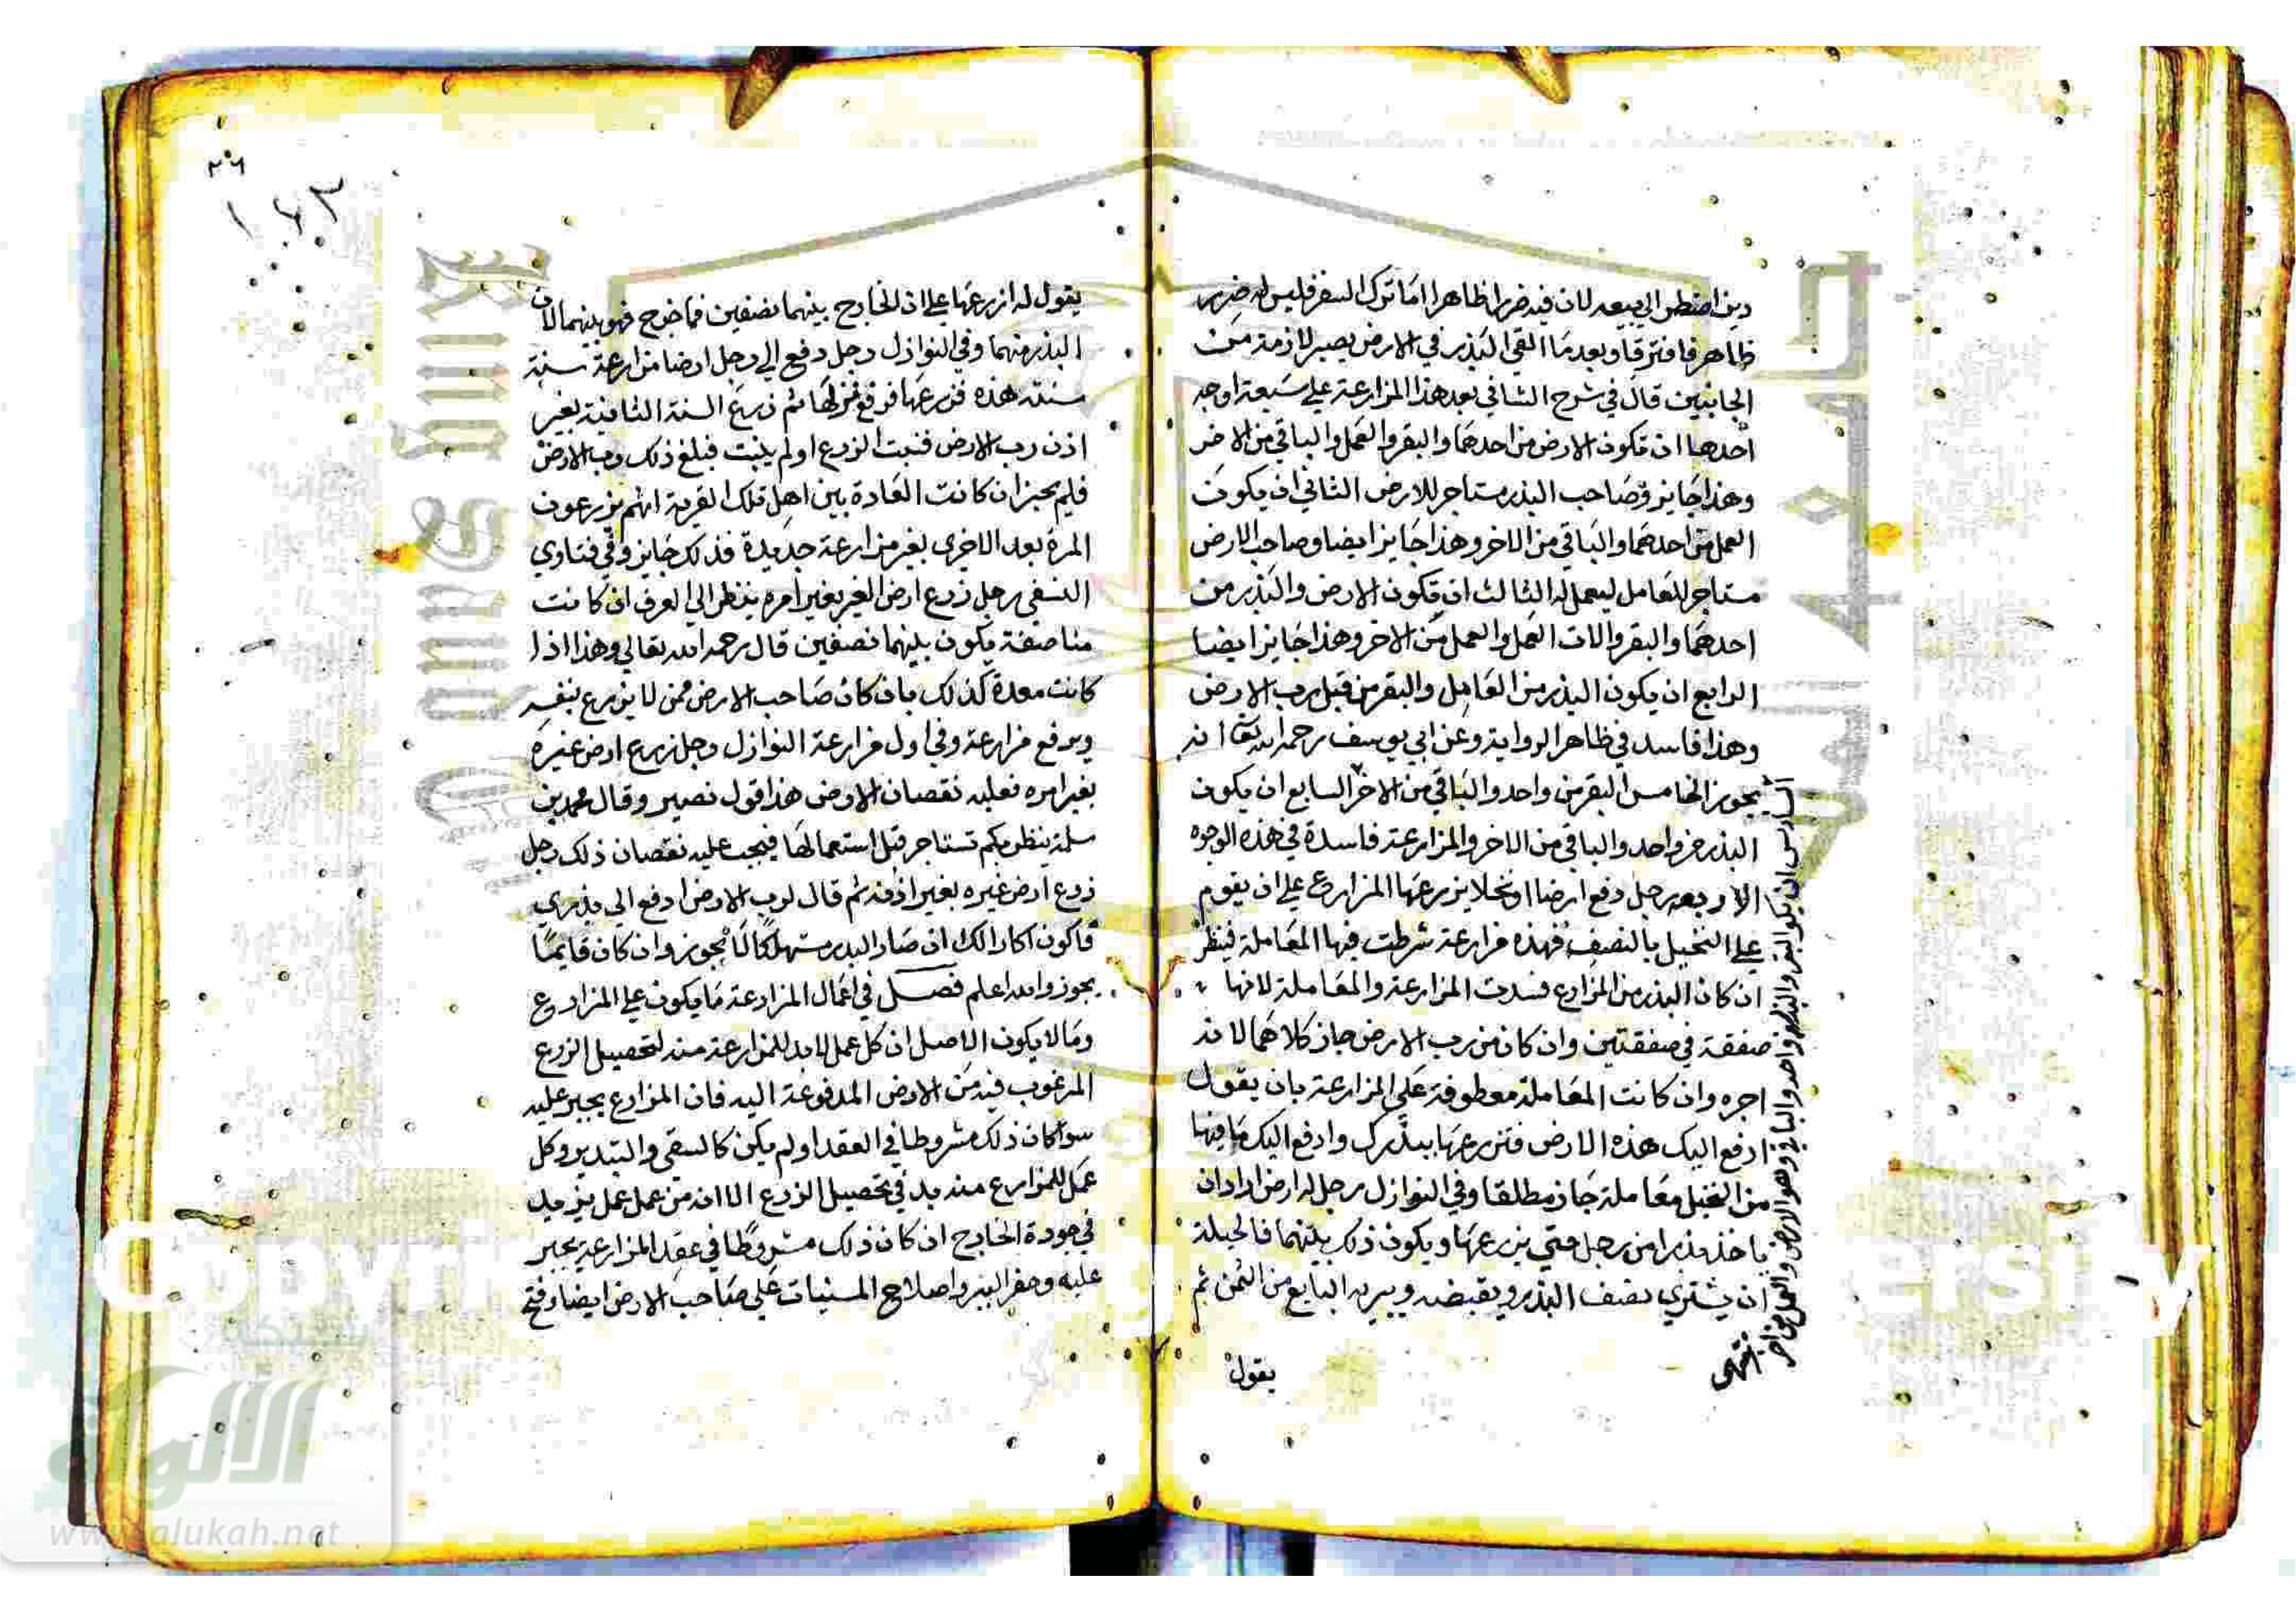 دين اضطر الي بيعه لان فيه ضررا ظاهرا اما ترك السفر فليس له ضرر
ظاهر فافترقا وبعد ما القي البذر في الارض يصير لازمة من
الجانبين قال في شرح الشافي بعد هذا المزارعة علي سبعة اوجه
احدها ان تكون الارض من احدهما والبقر والعمل والباقي من الاخر
وهذا جايز وصاحب البذر مستاجر للارض الثاني ان يكون
العمل من احدهما والباقي من الاخر وهذا جايز ايضا وصاحب الارض
مستاجر للعامل ليعمل له الثالث ان تكون الارض والبذر من
احدهما والبقر والات العمل والعمل من الاخر وهذا جايز ايضا
الرابع ان يكون البذر من العامل والبقر من قبل رب الارض
وهذا فاسد في ظاهر الرواية وعن ابي يوسف رحمه الله تعا انه
يجوز الخامس البقر من واحد والباقي من الاخر السابع ان يكون
البذر من واحد والباقي من الاخر والمزارعة فاسدة في هذه الوجوه
الاربعه رجل دفع ارضا او نخلا يزرعها المزارع علي ان يقوم
علي النخيل بالنصف فهذه مزارعة شرطت فيها المعاملة فينظر
ان كان البذر من المزارع فسدت المزارعة والمعاملة لانها
صفقة في صفقتين وان كان من رب الارض جاز كلاهما لانه
اجره وان كانت المعاملة معطوفة علي المزارعة بان يقول
ادفع اليك هذه الارض فتزرعها ببذرك وادفع اليك ما فيها
من النخيل معاملة جاز مطلقا وفي النوازل رجل له ارض اراد ان
ياخذ بذرا من رجل حتي يزرعها ويكون ذلك بينهما فالحيلة
ان يشتري نصف البذر ويقبضه ويبريه البايع من الثمن ثم
يقول
السادس ان يكون البقر والبذر من واحد والباقي وهو الارض والعمل من اخر
انتهى
٢٠٦
يقول له ازرعها علي ان الخارج بينهما نصفين فما خرج فهو بينهما لان
البذر منهما وفي النوازل رجل دفع الي رجل ارضا مزارعة سنة
سنته هذه فزرعها فرفع غزلها ثم زرع السنة الثانية بغير
اذن رب الارض فنبت الزرع او لم ينبت فبلغ ذلك رب الارض
فلم يجز ان كانت العادة بين اهل تلك القرية انهم يزرعون
المرة بعد الاخري بغير مزارعة جديدة فذلك جايز وفي فتاوي
النسفي رجل زرع ارض الغير بغير امره ينظر الي العرف ان كانت
مناصفة يكون بينهما نصفين قال رحمه الله تعالي وهذا اذا
كانت معدة كذلك بان كان صاحب الارض ممن لا يزرع بنفسه
ويرفع مزارعة وفي اول مزارعة النوازل رجل زرع ارض غيره
بغير امره فعليه نقصان الارض هذا قول نصير وقال محمد بن
سلمة ينظر بكم تستاجر قبل استعمالها فيجب عليه نقصان ذلك رجل
زرع ارض غيره بغير اذنه ثم قال لرب الارض ادفع الي بذري
فاكون اكارا لك ان صار البذر مستهلكا لا يجوز وان كان قايما
يجوز والله اعلم فصل في اعمال المزارعة ما يكون علي المزارع
وما لا يكون الاصل ان كل عمل لا بد للمزارعة منه لتحصيل الزرع
المرغوب فيه من الارض المدفوعة اليه فان المزارع يجبر عليه
سوا كان ذلك مشروطا في العقد او لم يكن كالسقي والتبذير وكل
عمل للمزارع منه بد في تحصيل الزرع الا انه من عمل عمل يزيد
في جودة الخارج ان كان ذلك مشروطا في عقد المزارعة يجبر
عليه وحفر البير واصلاح المسنيات علي صاحب الارض ايضا وفتح
شبكة
الألوكة
www.alukah.net